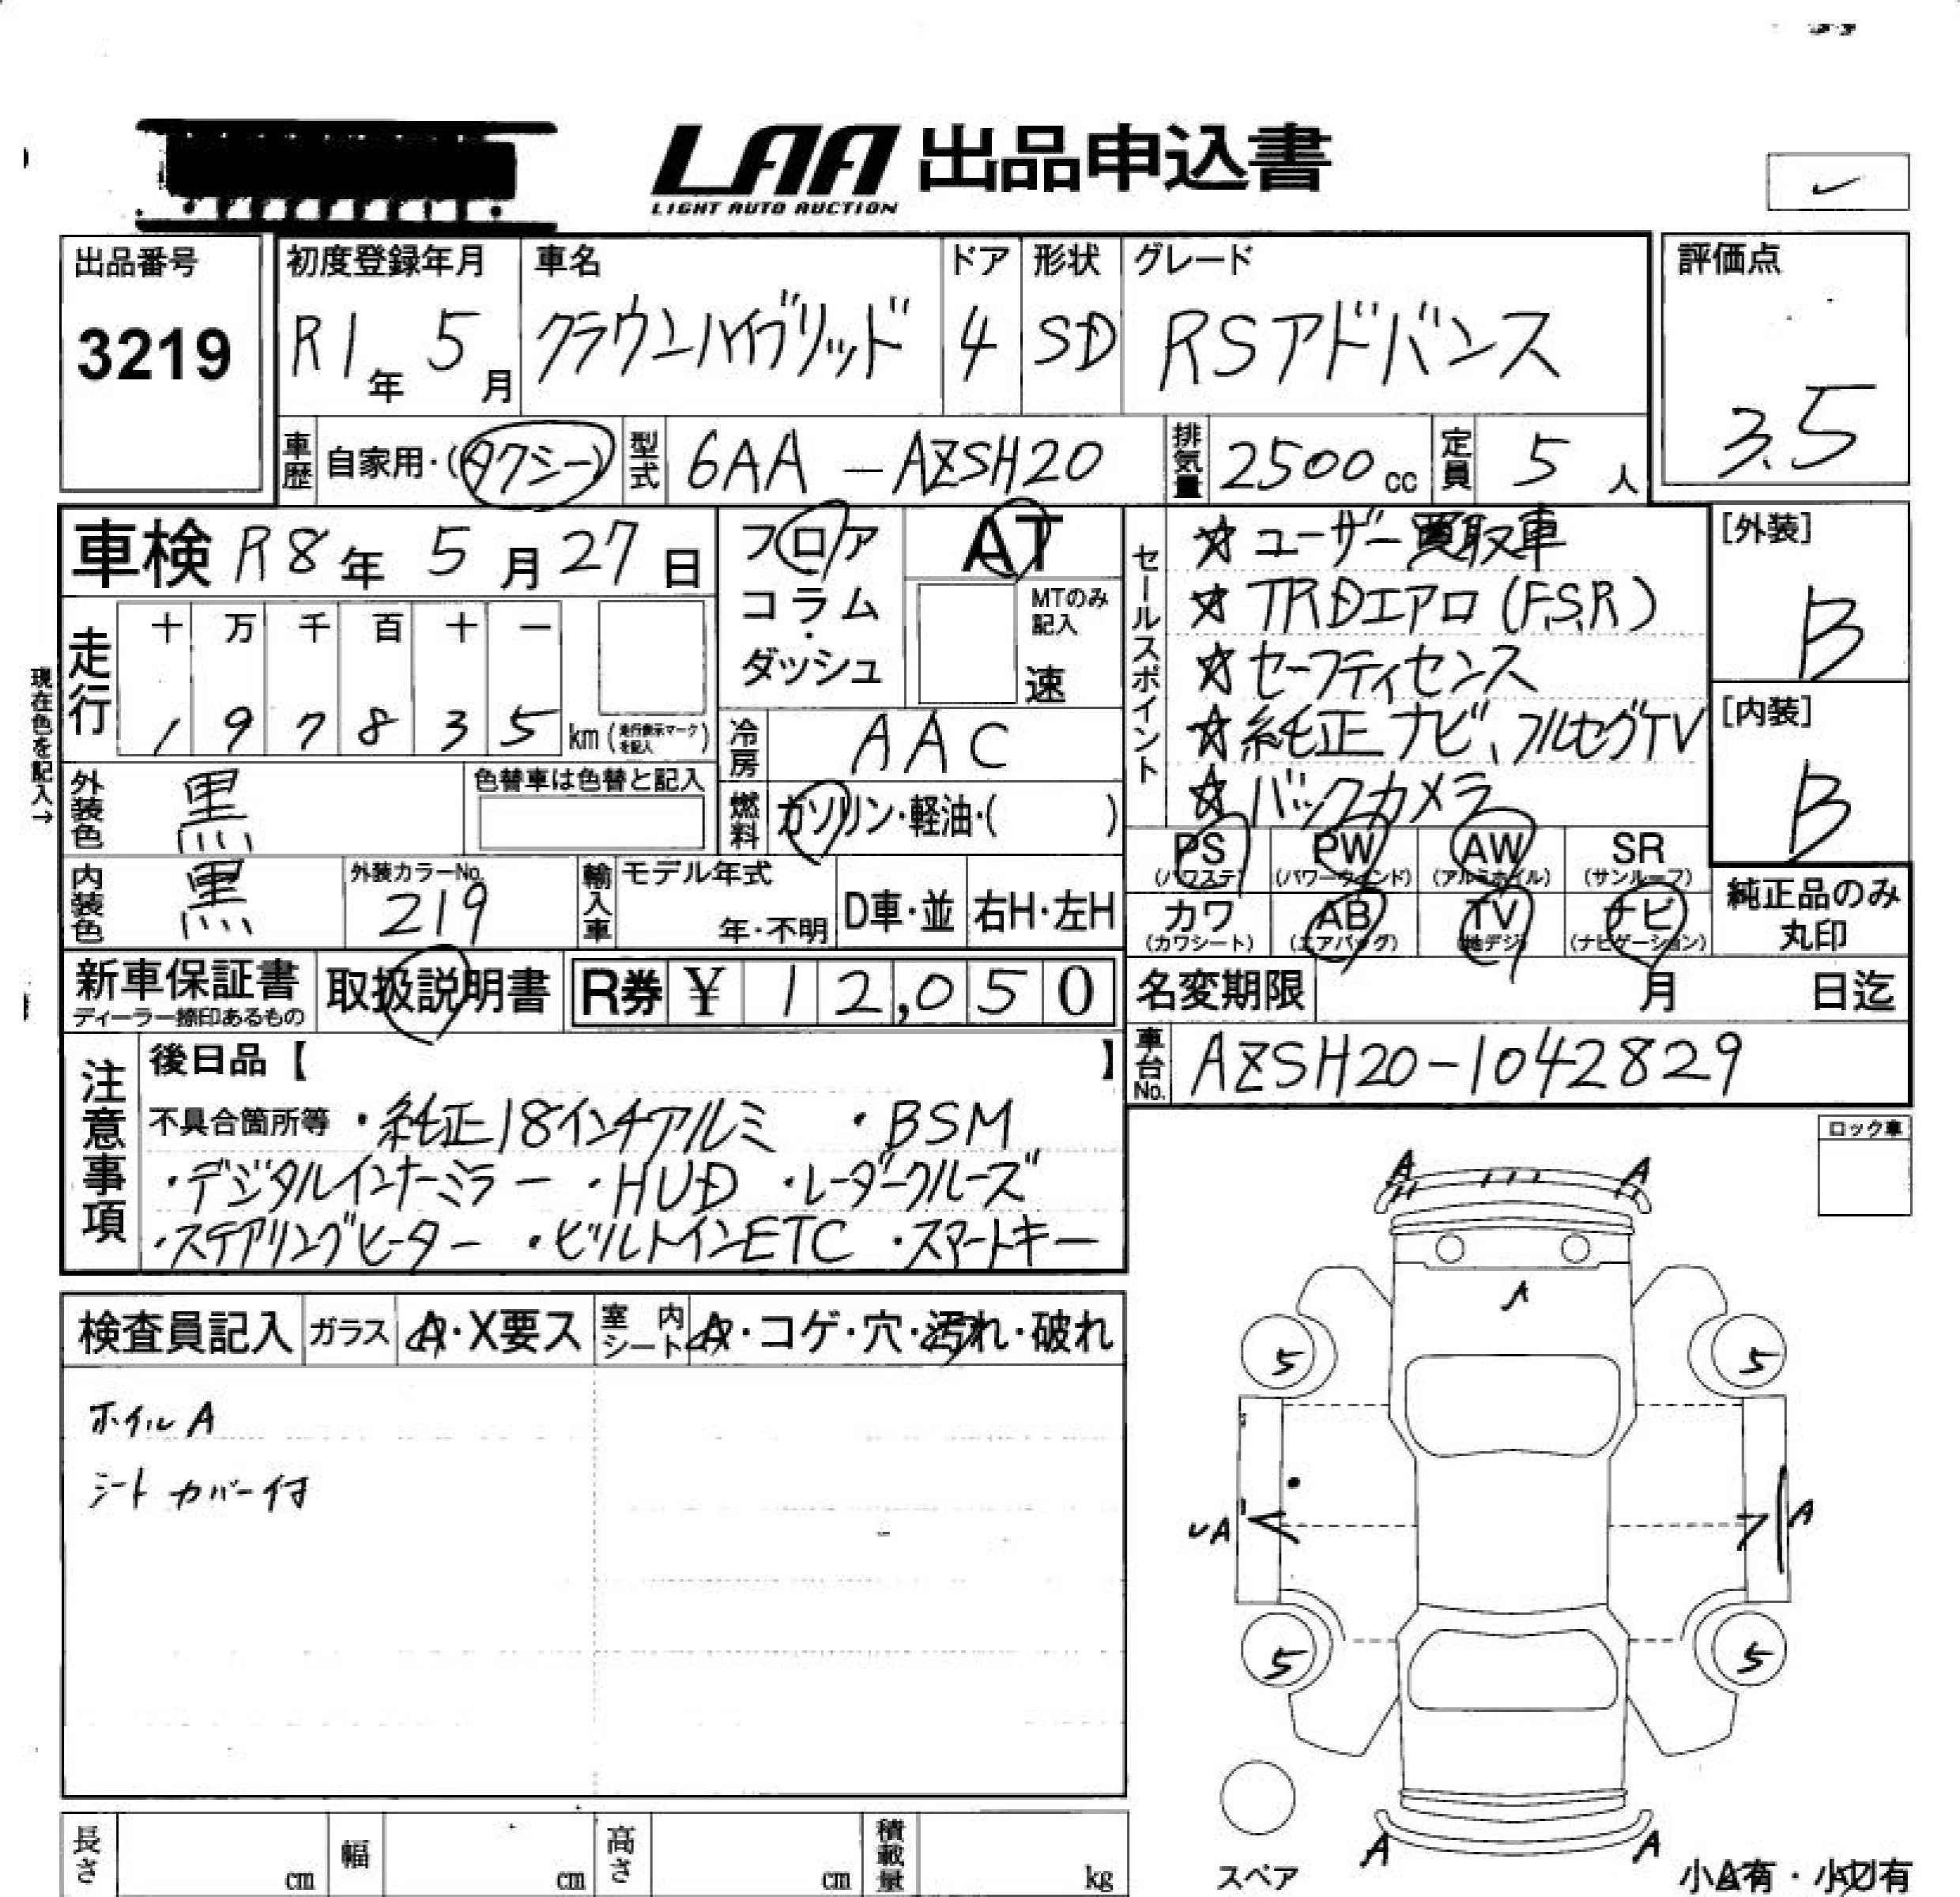 LAA 出品申込書
LIGHT AUTO AUCTION
出品番号
3219
初度登録年月
R1年 5月
車名
クラウンハイブリッド
ドア
4
形状
SD
グレード
RSアドバンス
評価点
3.5
車歴 自家用・(タクシー)
型式 6AA-AZSH20
排気量 2500cc
定員 5人
車検 R8年 5月27日
走行 十 万 千 百 十 一
1 9 7 8 3 5 km (走行表示マークを記入)
現在色を記入→
フロア
コラム
・
ダッシュ
AT
MTのみ
記入
速
冷房 AAC
燃料 ガソリン・軽油・( )
外装色 黒
色替車は色替と記入
内装色 黒
外装カラーNo.
219
輸入車 モデル年式
年・不明
D車・並 右H・左H
セールスポイント
☆ユーザー買取車
☆TRDエアロ(F,S,R)
☆セーフティセンス
☆純正ナビ、フルセグTV
☆バックカメラ
[外装]
B
[内装]
B
PS (パワステ) PW (パワーウィンド) AW (アルミホイル) SR (サンルーフ)
カワ (カワシート) AB (エアバッグ) TV (地デジ) ナビ (ナビゲーション)
純正品のみ
丸印
新車保証書
ディーラー捺印あるもの
取扱説明書
R券 ¥ 12,050
名変期限 月 日迄
車台No. AZSH20-1042829
注意事項
後日品【 】
不具合箇所等 ・純正18インチアルミ ・BSM
・デジタルインナーミラー ・HUD ・レーダークルーズ
・ステアリングヒーター ・ビルトインETC ・スマートキー
ロック車
検査員記入 ガラス A・X要ス 室内シート A・コゲ・穴・汚れ・破れ
ホイルA
シートカバー付
A A
A
5 5
UA A
5 5
A A
スペア
小A有・小U有
長さ cm 幅 cm 高さ cm 積載量 kg